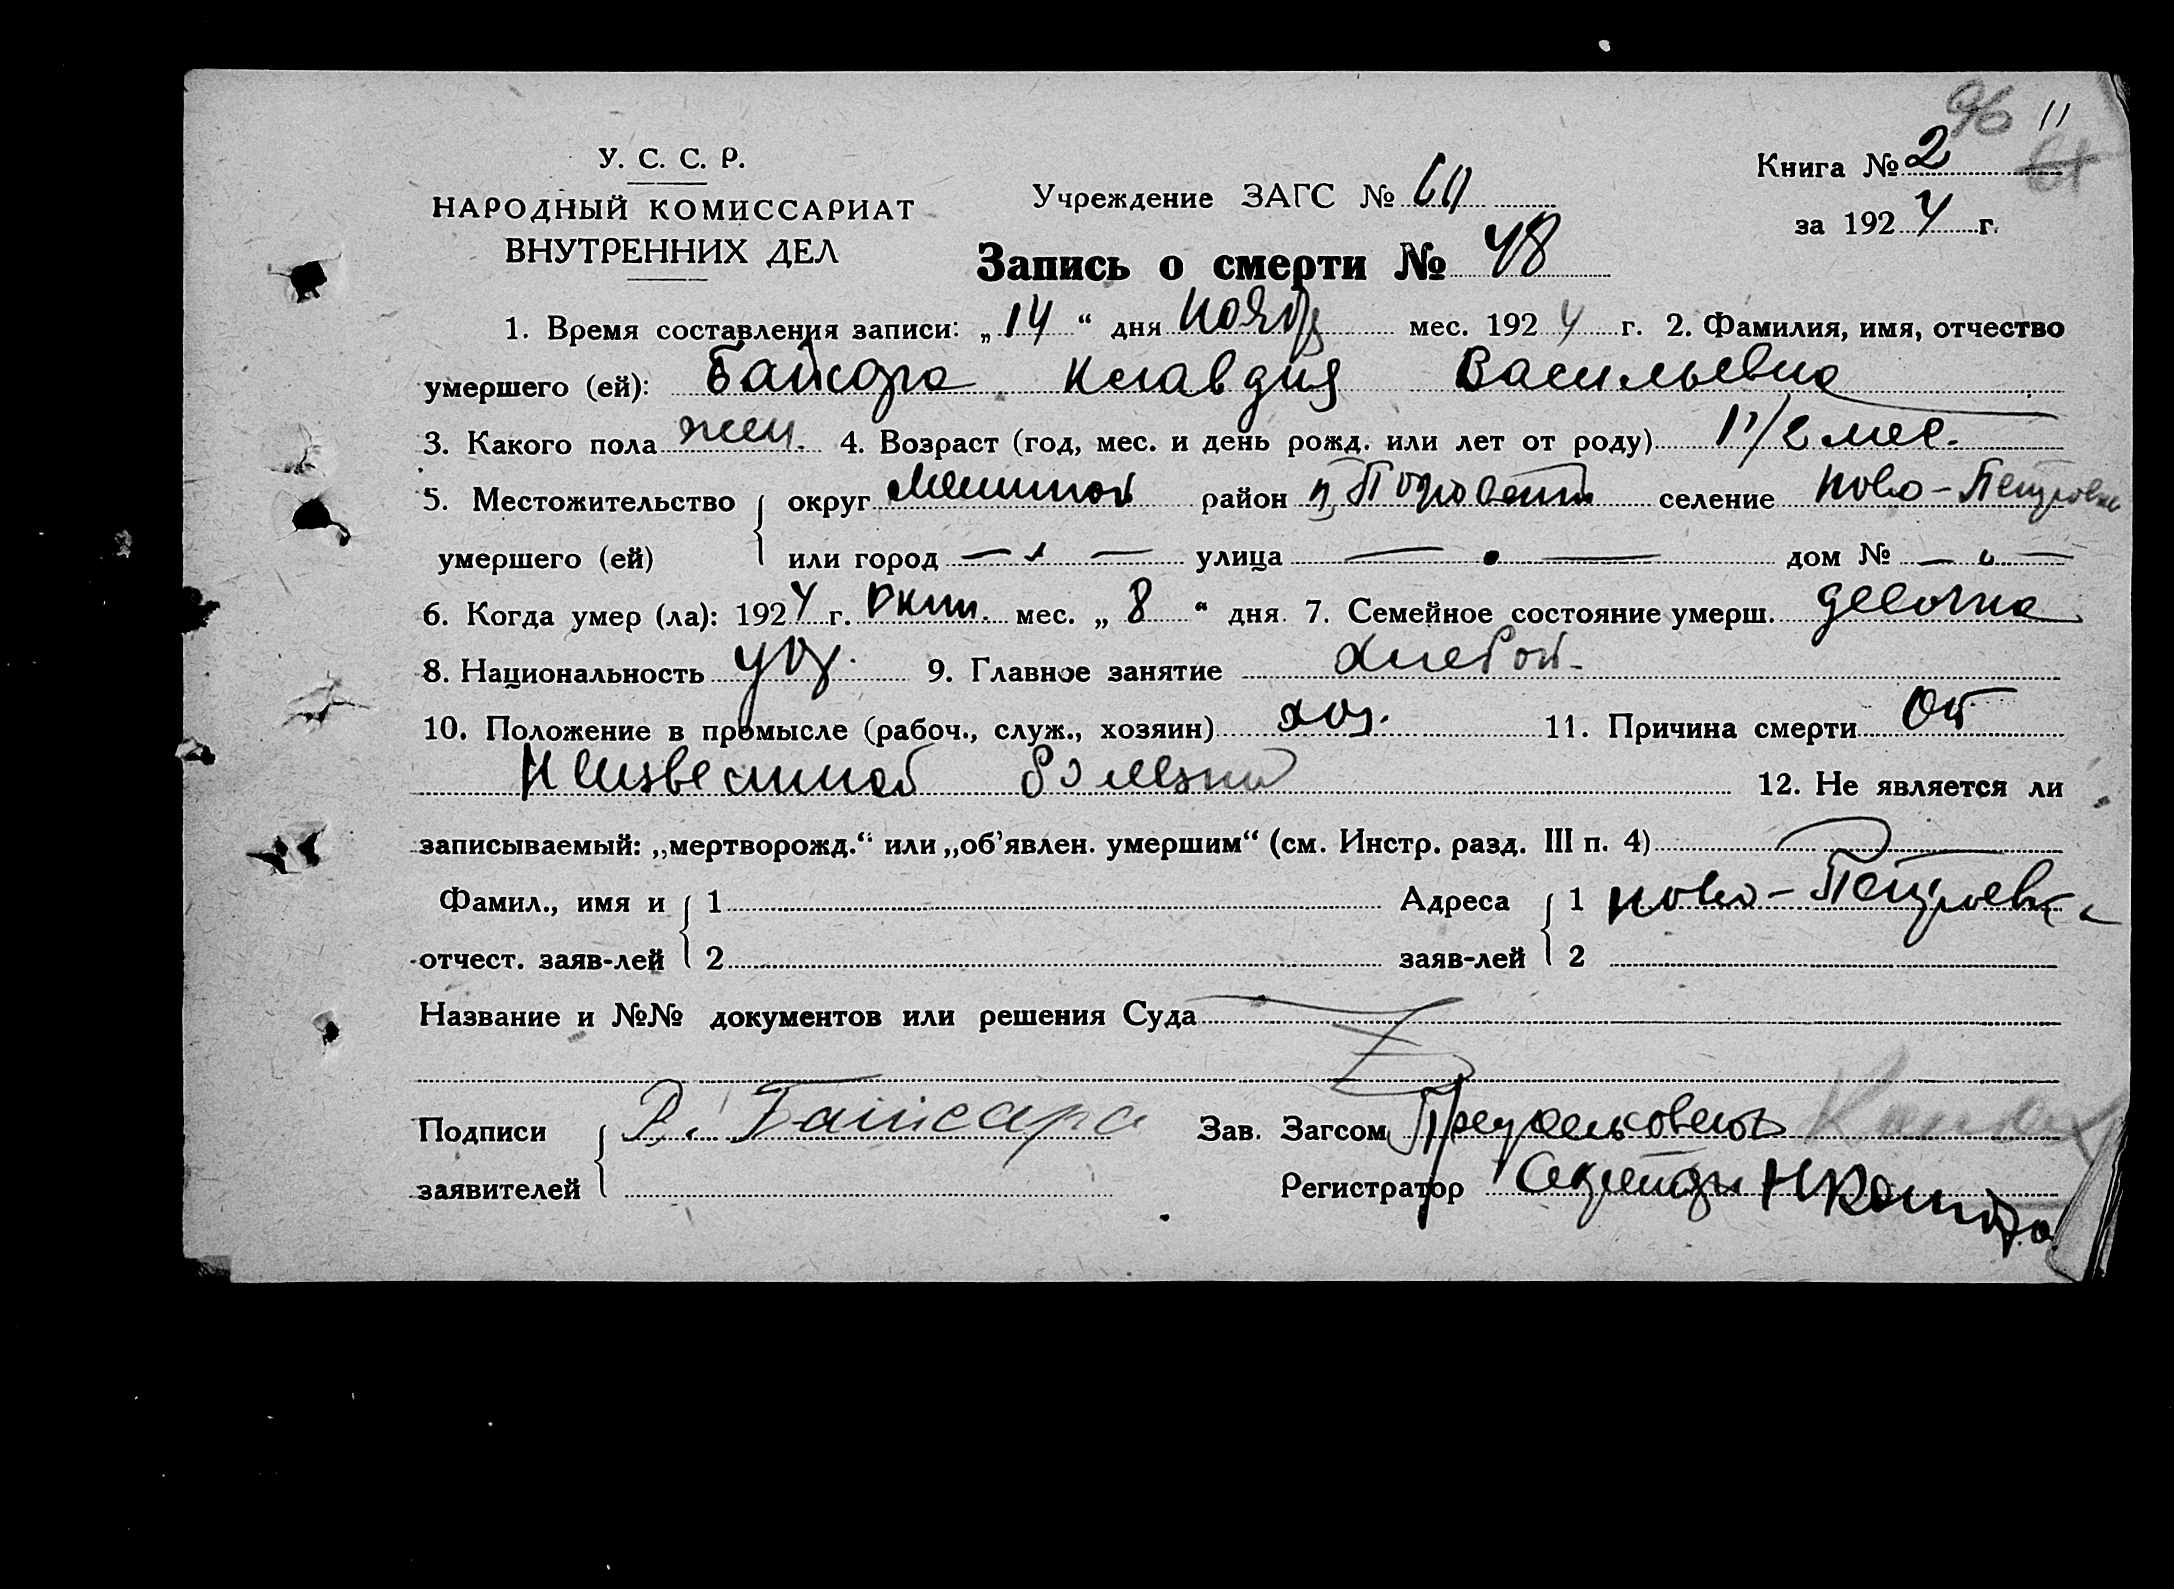 96 11
У. С. С. Р.
Книга № 2
НАРОДНЫЙ КОМИССАРИАТ
Учреждение ЗАГС № 60
за 1924 г.
ВНУТРЕННИХ ДЕЛ
Запись о смерти № 48
1. Время составления записи: „14“ дня Ноябр мес. 1924 г. 2. Фамилия, имя, отчество
умершего (ей): Байсара Клавдия Васильевна
3. Какого пола жен. 4. Возраст (год, мес. и день рожд. или лет от роду) 1 1/2 мес.
5. Местожительство округ район селение Ново-Петровка
умершего (ей) или город — — улица — — дом № — —
6. Когда умер (ла): 1924 г. Окт. мес. „8“ дня. 7. Семейное состояние умерш. девочка
8. Национальность укр. 9. Главное занятие хлебоп.
10. Положение в промысле (рабоч., служ., хозяин) хоз. 11. Причина смерти От
Неизвестной болезни 12. Не является ли
записываемый: „мертворожд.“ или „об’явлен. умершим“ (см. Инстр. разд. III п. 4)
Фамил., имя и 1 Адреса 1 Ново-Петровка
отчест. заяв-лей 2 заяв-лей 2
Название и №№ документов или решения Суда
Подписи В. Байсара Зав. Загсом
заявителей Регистратор